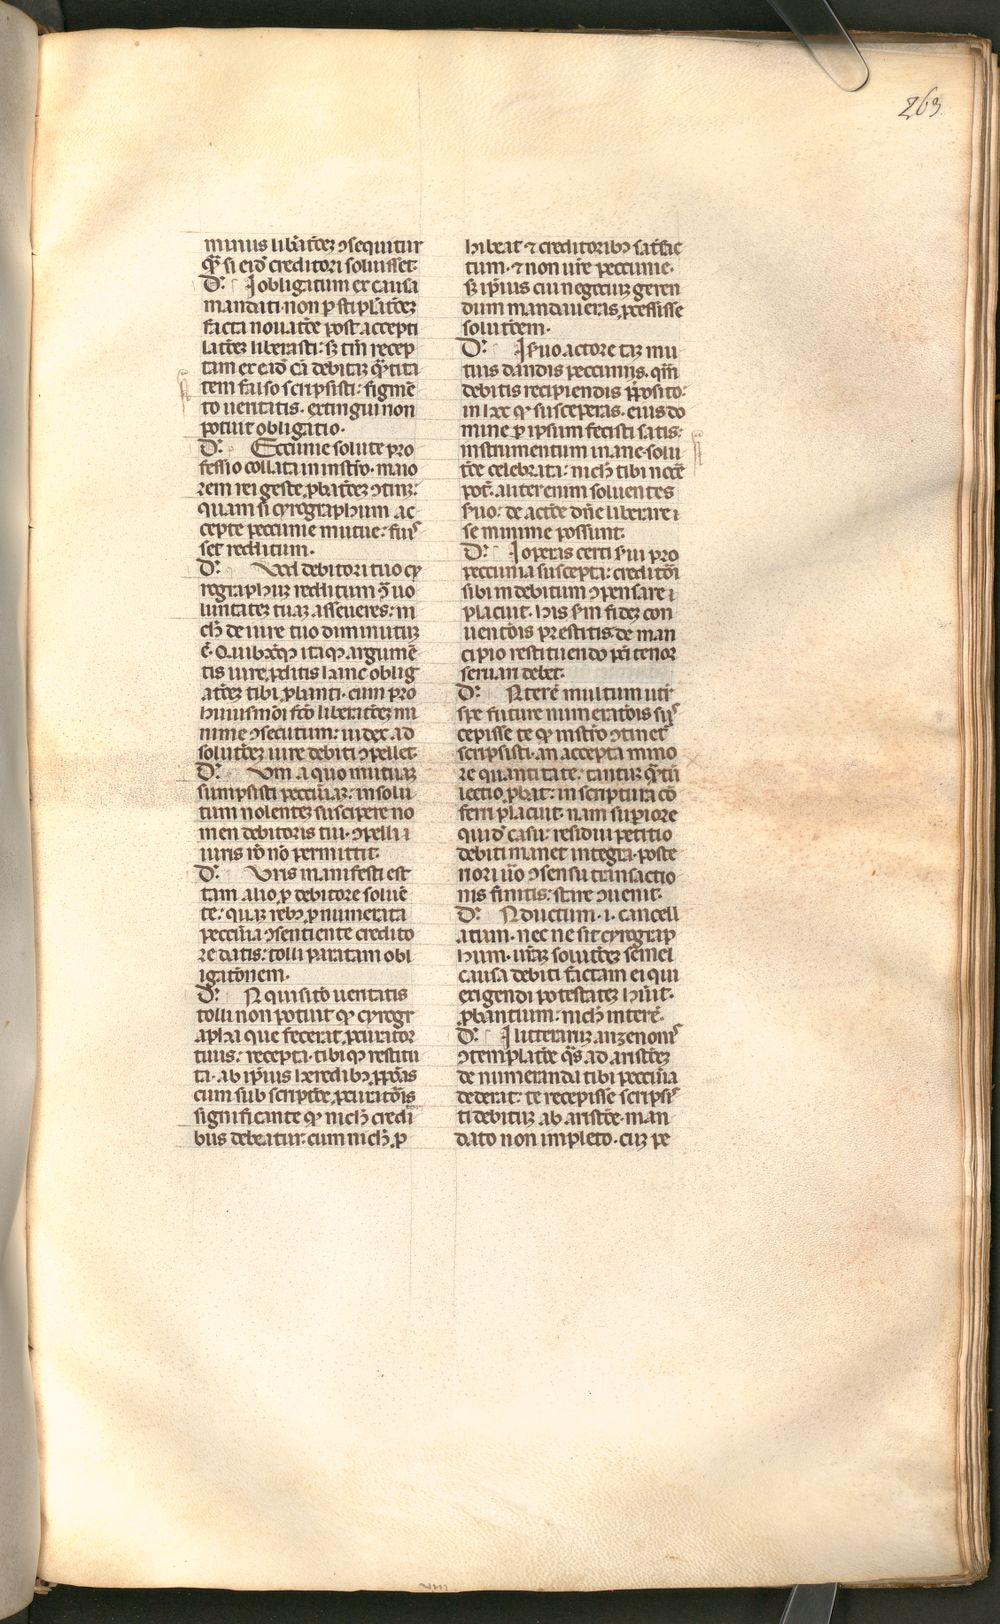 263
minus lib̄atōꝫ ꝯsequitur
qᷓ si eidē creditori soluisset.
D̄. I obligatum ex causa
mandati. non ꝑ stip̄latōꝫ
facta nouatōe post accepti
latōꝫ liberasti: sꝫ tm̄ recep
tam ex eid̄ cā debitā qᷓtita
tem falso scripsisti: figmē
to ueritatis. extingui non
potuit obligatio.
D̄. Eccunie solute pro
fessio collata in instr̄o. maio
rem rei geste ꝓbatōꝫ ꝯtinꝫ:
quam si cyrographum ac
cepte peccunie mutue: fuiſ
set redditum.
D̄. Vod debitori tuo cy
rographuꝫ redditum ꝯ̄ uo
luntatē tuaꝫ asseueres: ni
ch̄ de iure tuo diminutuꝫ
ē. Quibꝫcūqꝫ itaqꝫ argumē
tis iure ꝓditis hanc oblig
atōꝫ tibi ꝓbanti. cum pro
huiusmōi fc̄o liberatōꝫ mi
nime ꝯsecutum: iudex ad
solutōꝫ iure debiti ꝯpellet.
D̄. Vm a quo mutuaꝫ
sumpsisti peccūiaꝫ: in solu
tum nolentē suscipere no
men debitoris tui. ꝯpelli
iuris rō nō permittit.
D̄. Vris manifesti est
tam alio ꝓ debitore soluē
te: quaꝫ rebꝫ ꝓ numerata
peccūia ꝯsentiente credito
re datis: tolli paratam obl
igatōnem.
D̄. Nquisitō ueritatis
tolli non potuit qꝫ cyrogr
apha que fecerat ꝓcurator
tuus: recepta. tibiqꝫ restitu
ta. ab ip̄ius heredibꝫ ꝓpōas
cum sub scriptōe ꝓcuratōis
significante qꝫ nich̄ credi
bus debeatur: cum nich̄ ꝓ
hibeat ⁊ creditoribꝫ satisfac
tum. ⁊ non ur̄e peccunie.
sꝫ ip̄ius cui negociuꝫ geren
dum mandaueras, ꝓcessisse
solutōem.
D̄. I suo actore taꝫ mu
tuis dandis peccuniis. qm̄
debitis recipiendis p̄posito:
in hꝫ qꝫ susceperas. eius do
mine ꝑ ipsum fecisti satis:
instrumentum inane solu
tōe celebrata: nich̄ tibi nocē
pot̄. aliter enim soluentes
suo: de actōe dn̄e liberare
se minime possunt.
D̄. I operas certi sui pro
peccunia suscepta: creditōi
sibi in debitum ꝯpensare
placuit. his sm̄ fideꝫ con
uentōis prestitis. de man
cipio restituendo p̄ti tenor
seruari debet.
D̄. Nterē multum utꝝ
spe future numeratōis suſ
cepisse te qꝫ instr̄o ꝯtinet᷑
scripsisti. an accepta mino
re quantitate. tantuꝫ qᷓtū
lectio ꝓbat: in scriptura cō
ferri placuit. nam supiore
quidē casu: residui petitio
debiti manet integra. poste
riori uō ꝯsensu transactio
nis finitis: stare ꝯuenit.
D̄. Nductum. i. cancell
atum. nec ne sit cyrograp
hum. utꝝ solutōꝫ semel
causa debiti factam ei qui
exigendi potestatē hūit.
ꝓbantium: nich̄ interē.
D̄. I litterarū anzenoniſ
ꝯtemplatōe qᷓs ad aristōeꝫ
de numeranda tibi peccūia
dederat: te recepisse scripſi
ti debituꝫ ab aristōe. man
dato non impleto. cuꝫ pe